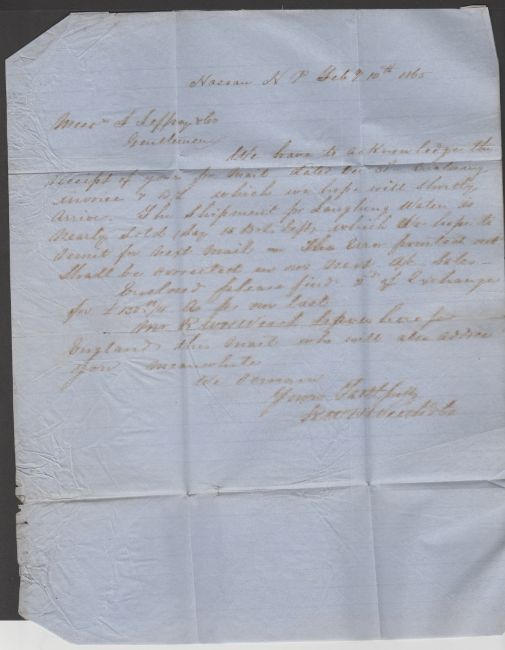 Nassau N P Feby 10th 1865
Messrs J Jeffrey & Co
Gentlemen
We have to acknowledge the
receipt of your pr mail dated
invoice & B/L which we hope will shortly
arrive. The Shipment pr Laughing Water is
nearly Sold Say 10 Bls left which We hope to
remit for next mail — The Error pointed out
Shall be corrected in our next Ac Sales —
Enclosed please find 2d of Exchange
for £150 As pr our last
Mr R W Weech leaves here for
England this mail who will also advise
you meanwhile
We remain
Yours Faithfully